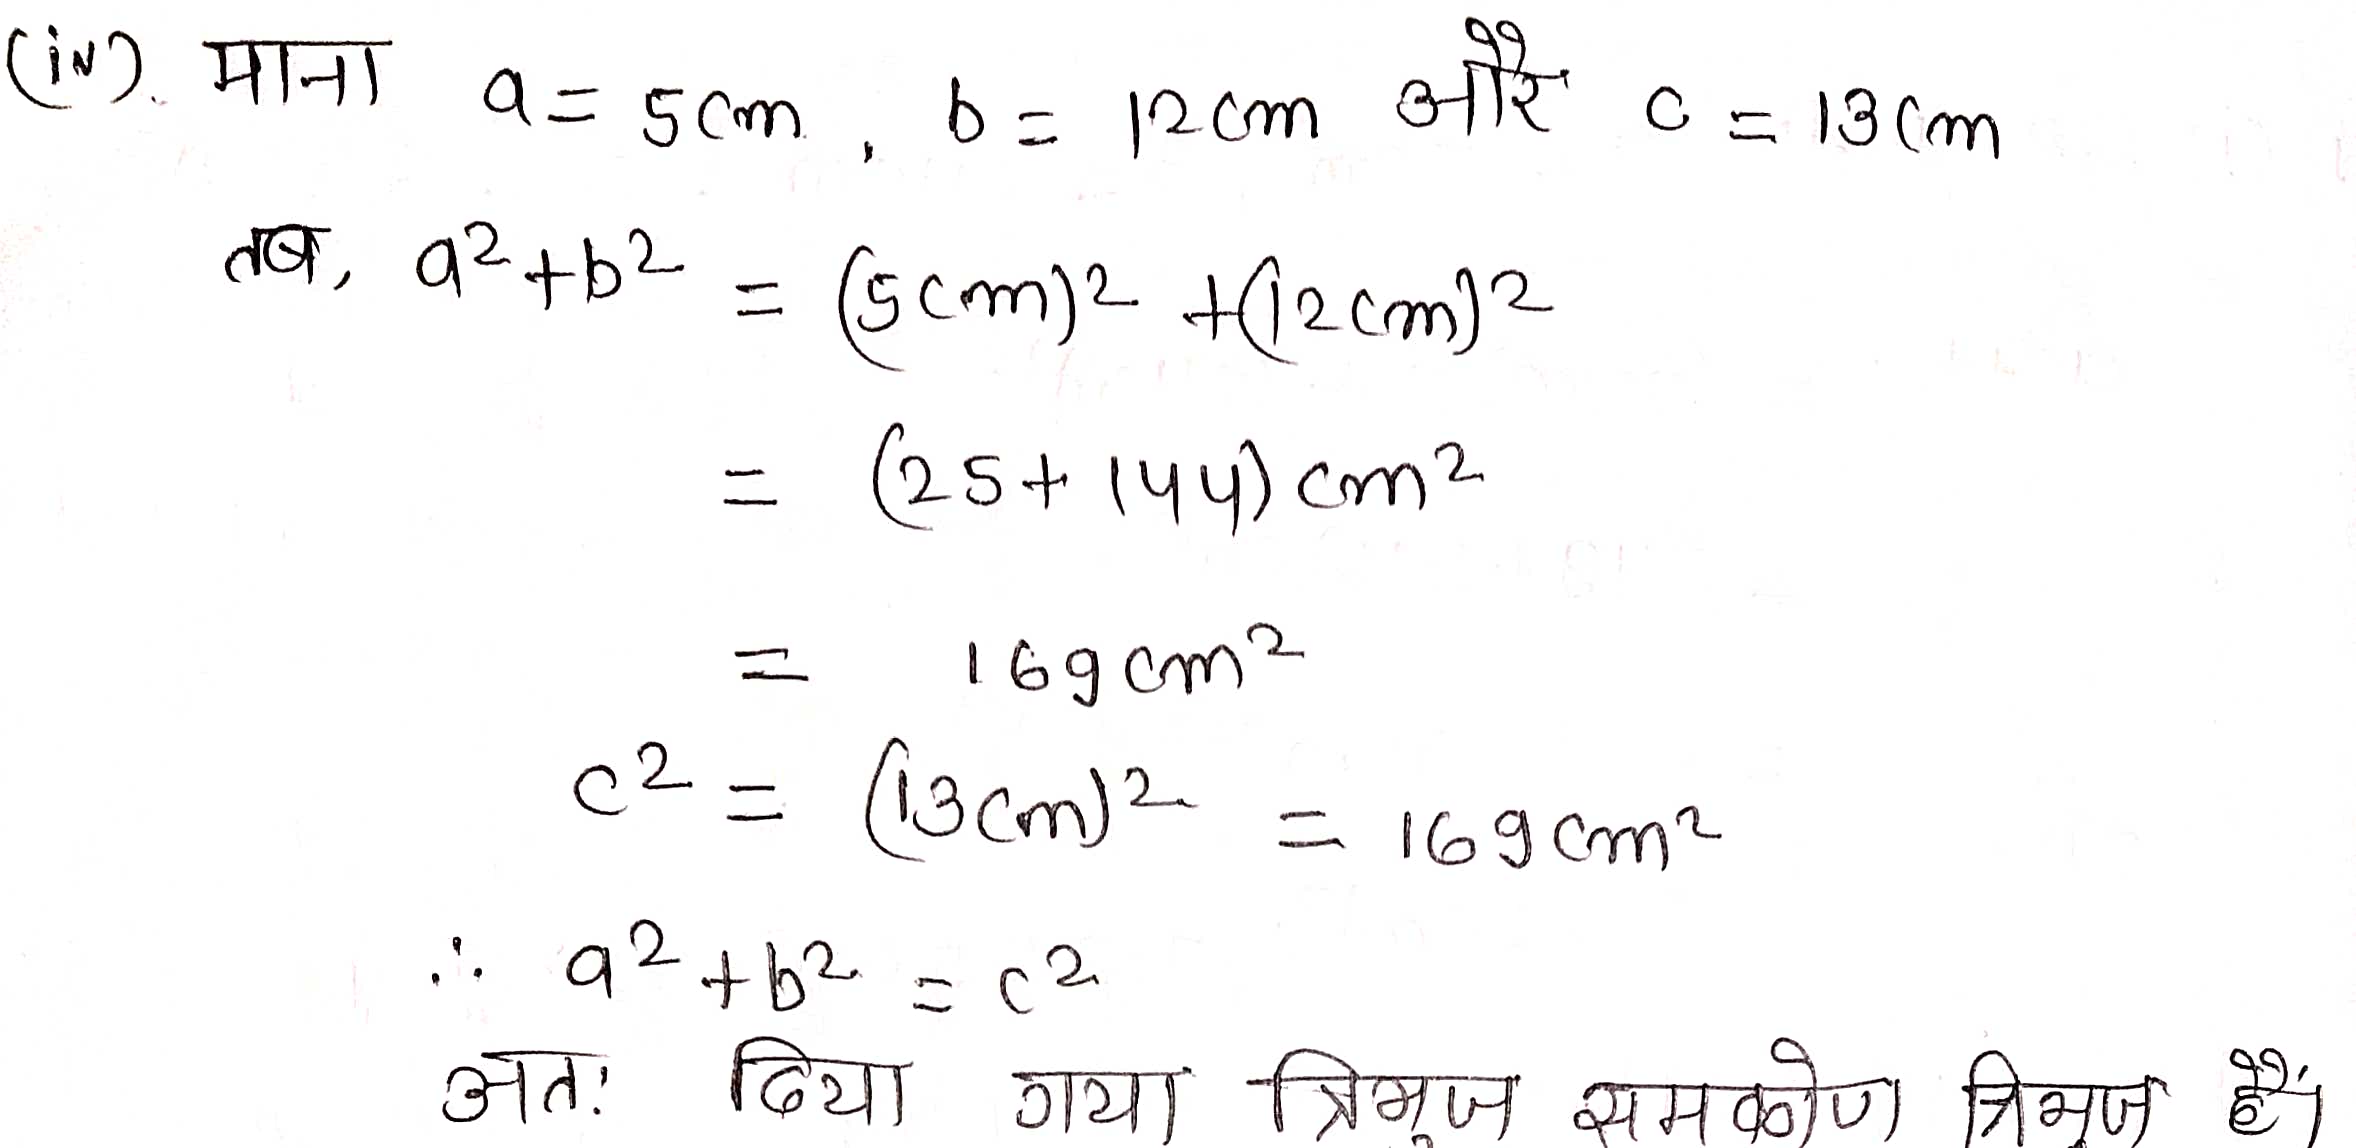 (iv). माना a = 5cm, b = 12cm और c = 13cm
तब, a² + b² = (5cm)² + (12cm)²
= (25 + 144) cm²
= 169 cm²
c² = (13cm)² = 169 cm²
∴ a² + b² = c²
अतः दिया गया त्रिभुज समकोण त्रिभुज हैं।